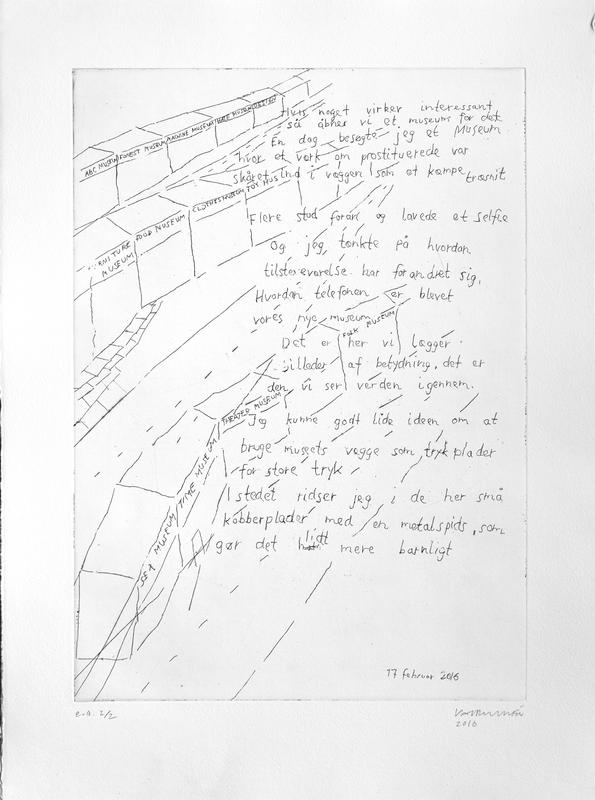 ABC MUSEUM
FOREST MUSEUM
MACHINE MUSEUM
MUSEUM
FURNITURE MUSEUM
FOOD MUSEUM
CLOTHES MUSEUM
TOY MUS
Hvis noget virker interessant
så åbner vi et museum for det
En dag besøgte jeg et Museum
hvor et værk om prostituerede var
skåret ind i væggen som et kæmpe træsnit
Flere stod foran og lavede et selfie
Og jeg tænkte på hvordan
tilstedeværelse har forandret sig,
Hvordan telefonen er blevet
vores nye museum
FOLK MUSEUM
Det er her vi lægger
billeder af betydning, det er
den vi ser verden igennem.
THEATER MUSEUM
Jeg kunne godt lide ideen om at
bruge museets vægge som trykplader
for store tryk
TIME MUSEUM
SEX MUSEUM
I stedet ridser jeg i de her små
kobberplader med en metalspids, som
gør det lidt mere barnligt
17 februar 2016
e.a. 2/2
2016